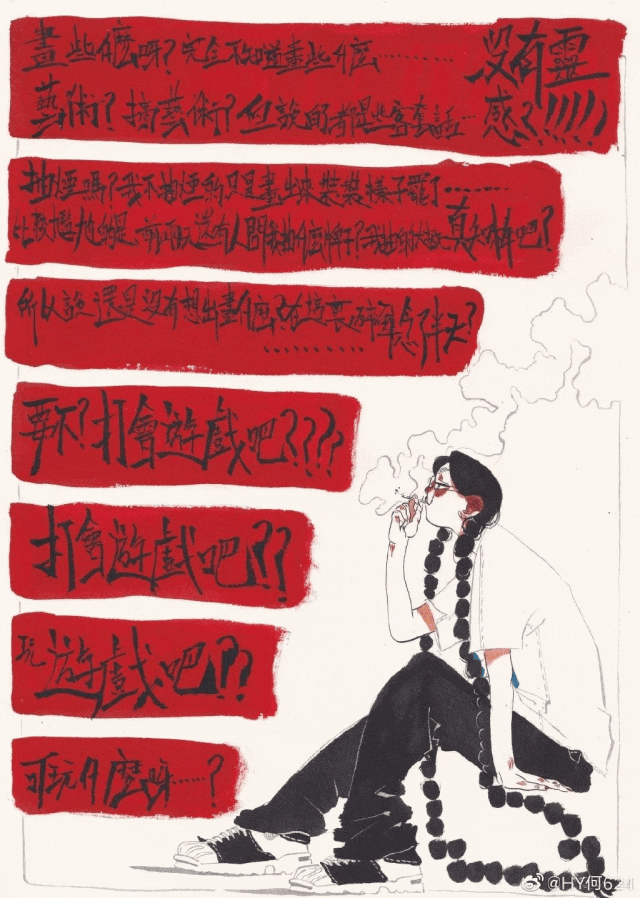 畫些什麼呀？完全不知道畫些什麼………
沒有靈感？！！！！！
藝術？搞藝術？但說的都是些客套話…
抽煙嗎？我不抽煙的只是畫出來裝裝樣子罷了………
比較尷尬的是前兩天還有人問我抽什麼牌子？我抽的大概是真知棒吧？
所以說還是沒有想出畫什麼？在這裏碎碎念了半天？
…………
要不？打會遊戲吧？？？？
打會遊戲吧？？
玩遊戲吧？？
可玩什麼呀……？
@HY何624